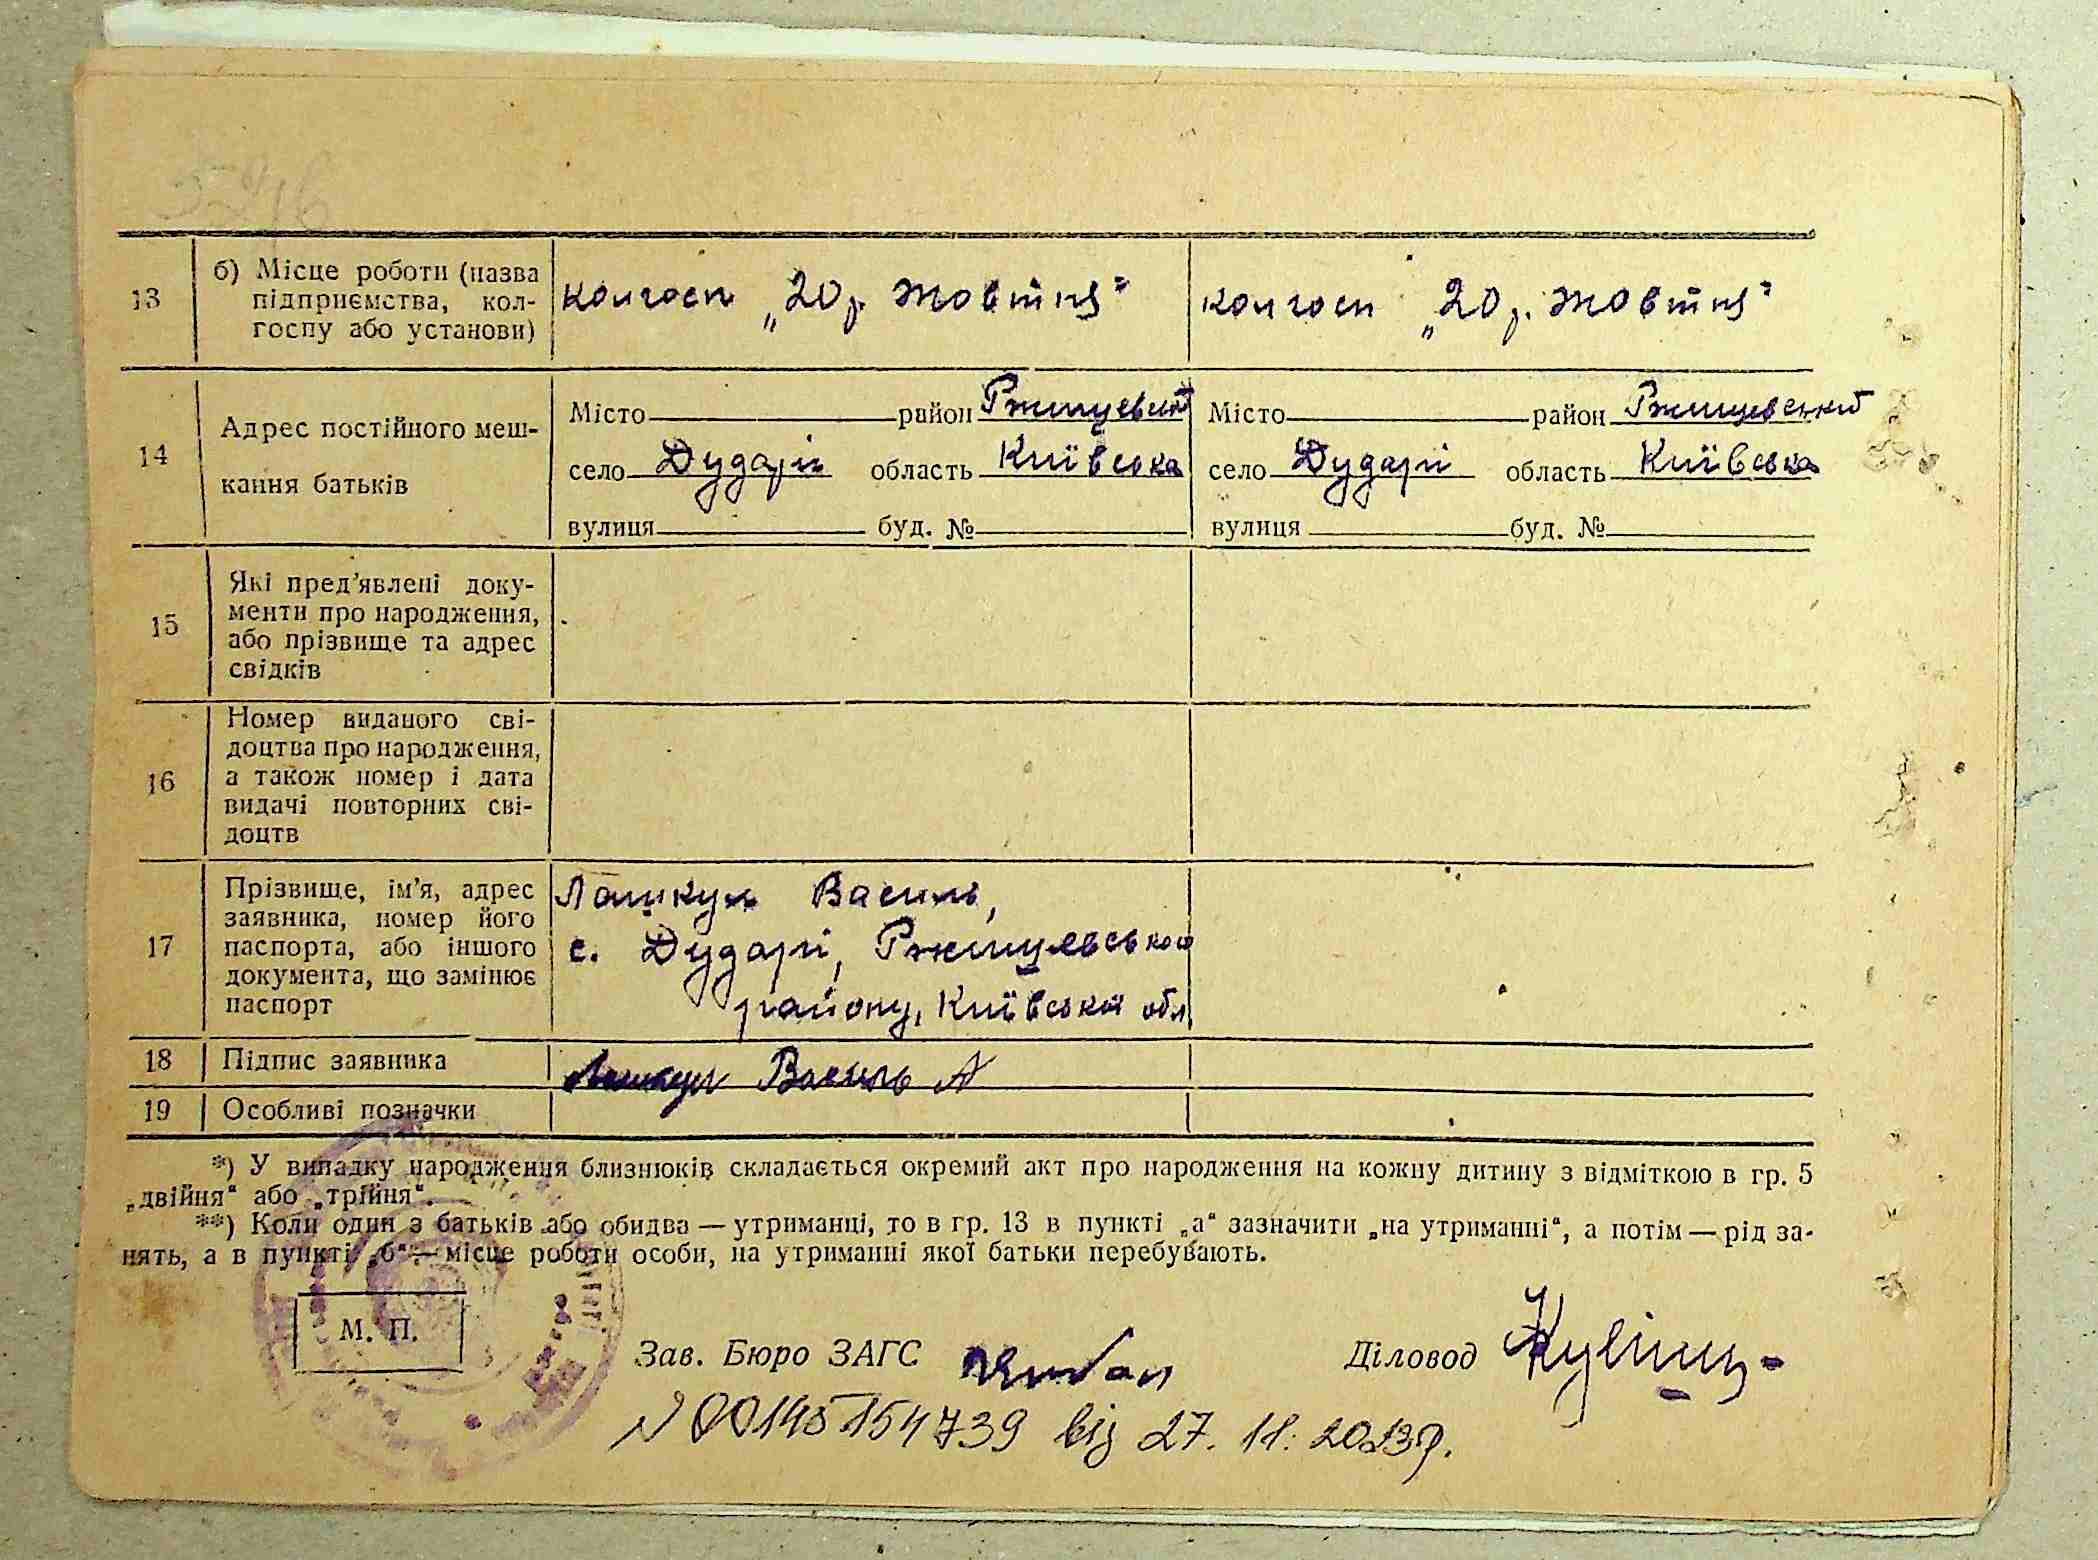 13
б) Місце роботи (назва
підприємства, кол-
госпу або установи)
колгосп „20 р. Жовтня“
колгосп „20 р. Жовтня“
14
Адрес постійного меш-
кання батьків
Місто район Ржищевський
село Дударі область Київська
вулиця буд. №
Місто район Ржищевський
село Дударі область Київська
вулиця буд. №
15
Які пред’явлені доку-
менти про народження,
або прізвище та адрес
свідків
16
Номер виданого сві-
доцтва про народження,
а також номер і дата
видачі повторних сві-
доцтв
17
Прізвище, ім’я, адрес
заявника, номер його
паспорта, або іншого
документа, що замінює
паспорт
Лашкул Василь,
с. Дударі, Ржищевського
району, Київської обл.
18
Підпис заявника
Лашкул Василь А
19
Особливі позначки
*) У випадку народження близнюків складається окремий акт про народження на кожну дитину з відміткою в гр. 5
„двійня“ або „трійня“.
**) Коли один з батьків або обидва — утриманці, то в гр. 13 в пункті „а“ зазначити „на утриманні“, а потім — рід за-
нять, а в пункті „б“ — місце роботи особи, на утриманні якої батьки перебувають.
М. П.
Зав. Бюро ЗАГС
Діловод
N 00145154739 від 27. 11. 2023р.